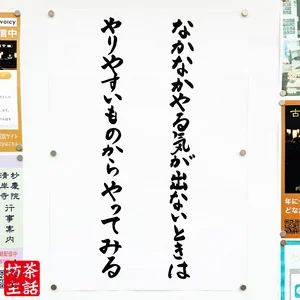 なかなかやる気が出ないときは
やりやすいものからやってみる
voicy
妙慶院
清岸寺
行事案内
坊主
茶話